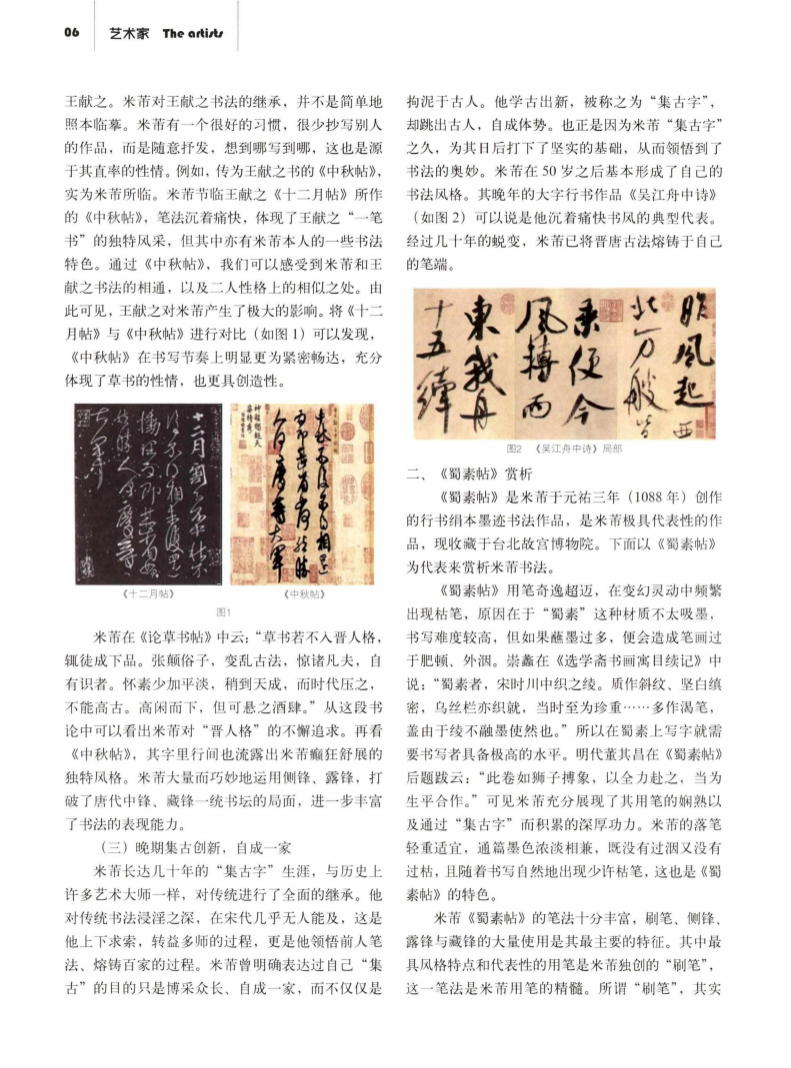 06 艺术家 The artists
王献之。米芾对王献之书法的继承，并不是简单地
照本临摹。米芾有一个很好的习惯，很少抄写别人
的作品，而是随意抒发，想到哪写到哪，这也是源
于其直率的性情。例如，传为王献之书的《中秋帖》，
实为米芾所临。米芾节临王献之《十二月帖》所作
的《中秋帖》，笔法沉着痛快，体现了王献之“一笔
书”的独特风采，但其中亦有米芾本人的一些书法
特色。通过《中秋帖》，我们可以感受到米芾和王
献之书法的相通，以及二人性格上的相似之处。由
此可见，王献之对米芾产生了极大的影响。将《十二
月帖》与《中秋帖》进行对比（如图1）可以发现，
《中秋帖》在书写节奏上明显更为紧密畅达，充分
体现了草书的性情，也更具创造性。
《十二月帖》
《中秋帖》
图1
米芾在《论草书帖》中云：“草书若不入晋人格，
辄徒成下品。张颠俗子，变乱古法，惊诸凡夫，自
有识者。怀素少加平淡，稍到天成，而时代压之，
不能高古。高闲而下，但可悬之酒肆。”从这段书
论中可以看出米芾对“晋人格”的不懈追求。再看
《中秋帖》，其字里行间也流露出米芾癫狂舒展的
独特风格。米芾大量而巧妙地运用侧锋、露锋，打
破了唐代中锋、藏锋一统书坛的局面，进一步丰富
了书法的表现能力。
（三）晚期集古创新，自成一家
米芾长达几十年的“集古字”生涯，与历史上
许多艺术大师一样，对传统进行了全面的继承。他
对传统书法浸淫之深，在宋代几乎无人能及，这是
他上下求索，转益多师的过程，更是他领悟前人笔
法、熔铸百家的过程。米芾曾明确表达过自己“集
古”的目的只是博采众长、自成一家，而不仅仅是
拘泥于古人。他学古出新，被称之为“集古字”，
却跳出古人，自成体势。也正是因为米芾“集古字”
之久，为其日后打下了坚实的基础，从而领悟到了
书法的奥妙。米芾在50岁之后基本形成了自己的
书法风格。其晚年的大字行书作品《吴江舟中诗》
（如图2）可以说是他沉着痛快书风的典型代表。
经过几十年的蜕变，米芾已将晋唐古法熔铸于自己
的笔端。
昨風起西
北万艘皆
乗便今
風轉而
東我舟
十五縴
图2 《吴江舟中诗》局部
二、《蜀素帖》赏析
《蜀素帖》是米芾于元祐三年（1088年）创作
的行书绢本墨迹书法作品，是米芾极具代表性的作
品，现收藏于台北故宫博物院。下面以《蜀素帖》
为代表来赏析米芾书法。
《蜀素帖》用笔奇逸超迈，在变幻灵动中频繁
出现枯笔，原因在于“蜀素”这种材质不太吸墨，
书写难度较高，但如果蘸墨过多，便会造成笔画过
于肥顿、外洇。崇彝在《选学斋书画寓目续记》中
说：“蜀素者，宋时川中织之绫。质作斜纹、坚白缜
密，乌丝栏亦织就，当时至为珍重……多作渴笔，
盖由于绫不融墨使然也。”所以在蜀素上写字就需
要书写者具备极高的水平。明代董其昌在《蜀素帖》
后题跋云：“此卷如狮子搏象，以全力赴之，当为
生平合作。”可见米芾充分展现了其用笔的娴熟以
及通过“集古字”而积累的深厚功力。米芾的落笔
轻重适宜，通篇墨色浓淡相兼，既没有过洇又没有
过枯，且随着书写自然地出现少许枯笔，这也是《蜀
素帖》的特色。
米芾《蜀素帖》的笔法十分丰富，刷笔、侧锋、
露锋与藏锋的大量使用是其最主要的特征。其中最
具风格特点和代表性的用笔是米芾独创的“刷笔”，
这一笔法是米芾用笔的精髓。所谓“刷笔”，其实